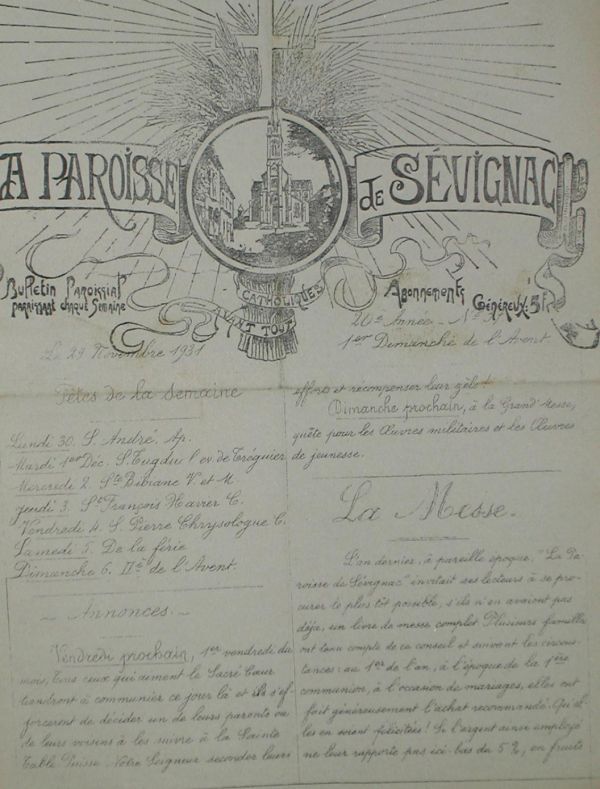 A PAROISSE DE SÉVIGNAC
CATHOLIQUES
AVANT TOUT
Bulletin Paroissial
paraissant chaque Semaine
Abonnements
Généreux: 5f
Le 29 Novembre 1931
20e Année - No
1er Dimanche de l'Avent
Fêtes de la Semaine
Lundi 30. S. André, Ap.
Mardi 1er Déc. S. Tugdual ev. de Tréguier
Mercredi 2. Ste Bibiane V. et M.
Jeudi 3. St François Xavier C.
Vendredi 4. S. Pierre Chrysologue C.
Samedi 5. De la férie
Dimanche 6. IIe de l'Avent.
- Annonces. -
Vendredi prochain, 1er vendredi du
mois, tous ceux qui aiment le Sacré Cœur
tiendront à communier ce jour là et ils s'ef
forcerent de décider un de leurs parents ou
de leurs voisins à les suivre à la Sainte
Table. Puisse Notre Seigneur seconder leurs
efforts et récompenser leur zèle!
Dimanche prochain, à la Grand'Messe,
quête pour les Œuvres militaires et les Œuvres
de jeunesse.
La Messe.
L'an dernier, à pareille époque, "La Pa
roisse de Sévignac" invitait ses lecteurs à se pro-
curer le plus tôt possible, s'ils n'en avaient pas
déjà, un livre de messe complet. Plusieurs familles
ont tenu compte de ce conseil et suivant les circons-
tances: au 1er de l'an, à l'époque de la 1ère
communion, à l'occasion de mariages, elles ont
fait généreusement l'achat recommandé. Qu'el-
les en soient félicitées! Si l'argent ainsi employé
ne leur rapporte pas ici-bas du 5%, en fruits